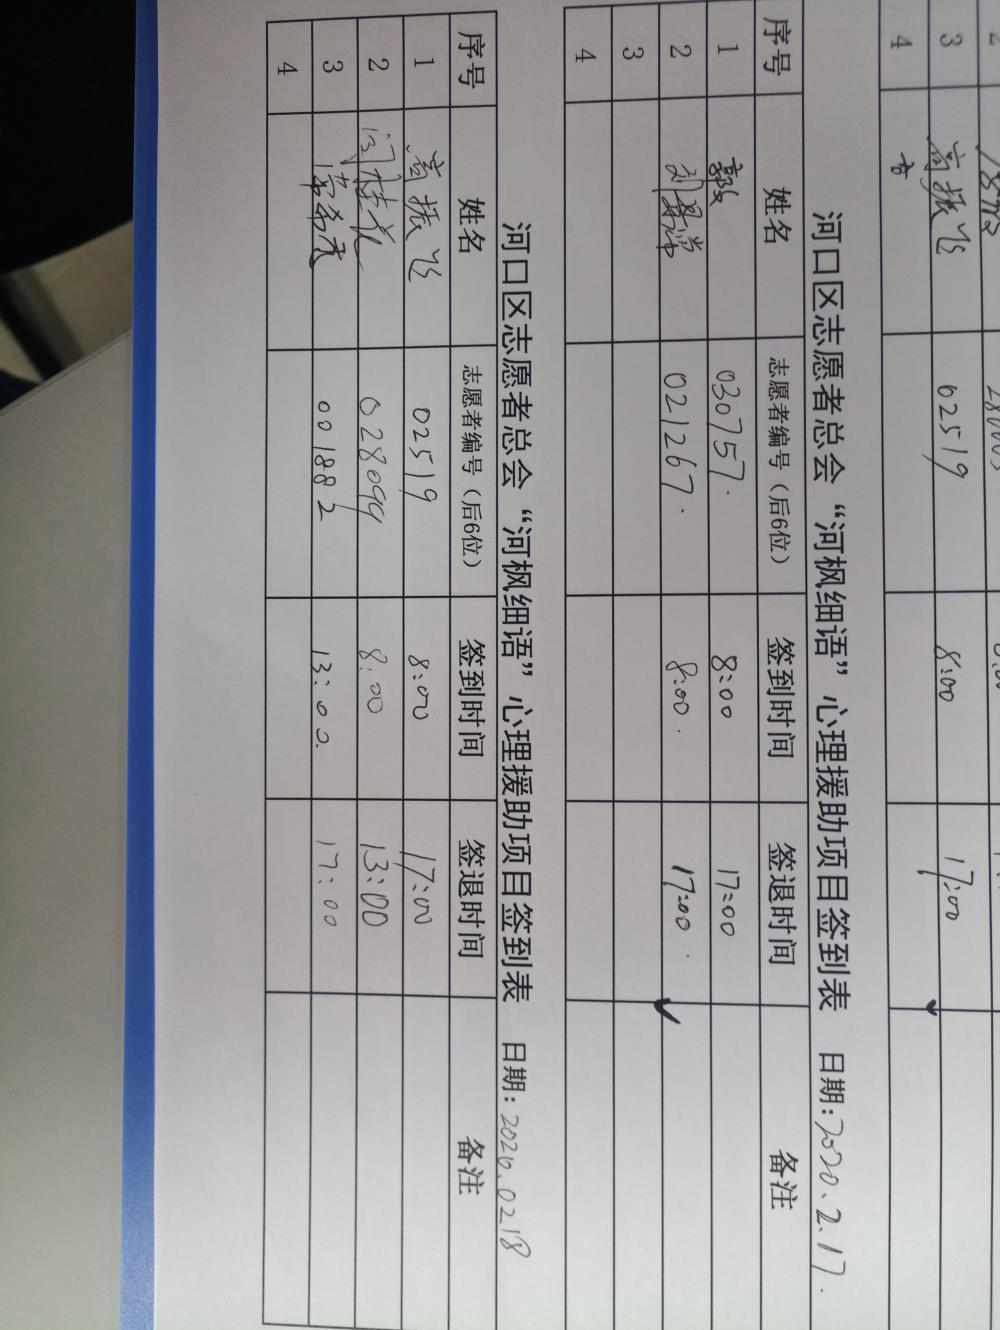 3 高振 02519 8:00 17:00
4
河口区志愿者总会“河枫细语”心理援助项目签到表 日期:2020.2.17.
序号 姓名 志愿者编号(后6位) 签到时间 签退时间 备注
1 030757. 8:00 17:00
2 021267. 8:00. 17:00.
3
4
河口区志愿者总会“河枫细语”心理援助项目签到表 日期:2020.0218
序号 姓名 志愿者编号(后6位) 签到时间 签退时间 备注
1 高振 02519 8:00 17:00
2 028099 8:00 13:00
3 001882 13:00. 17:00
4